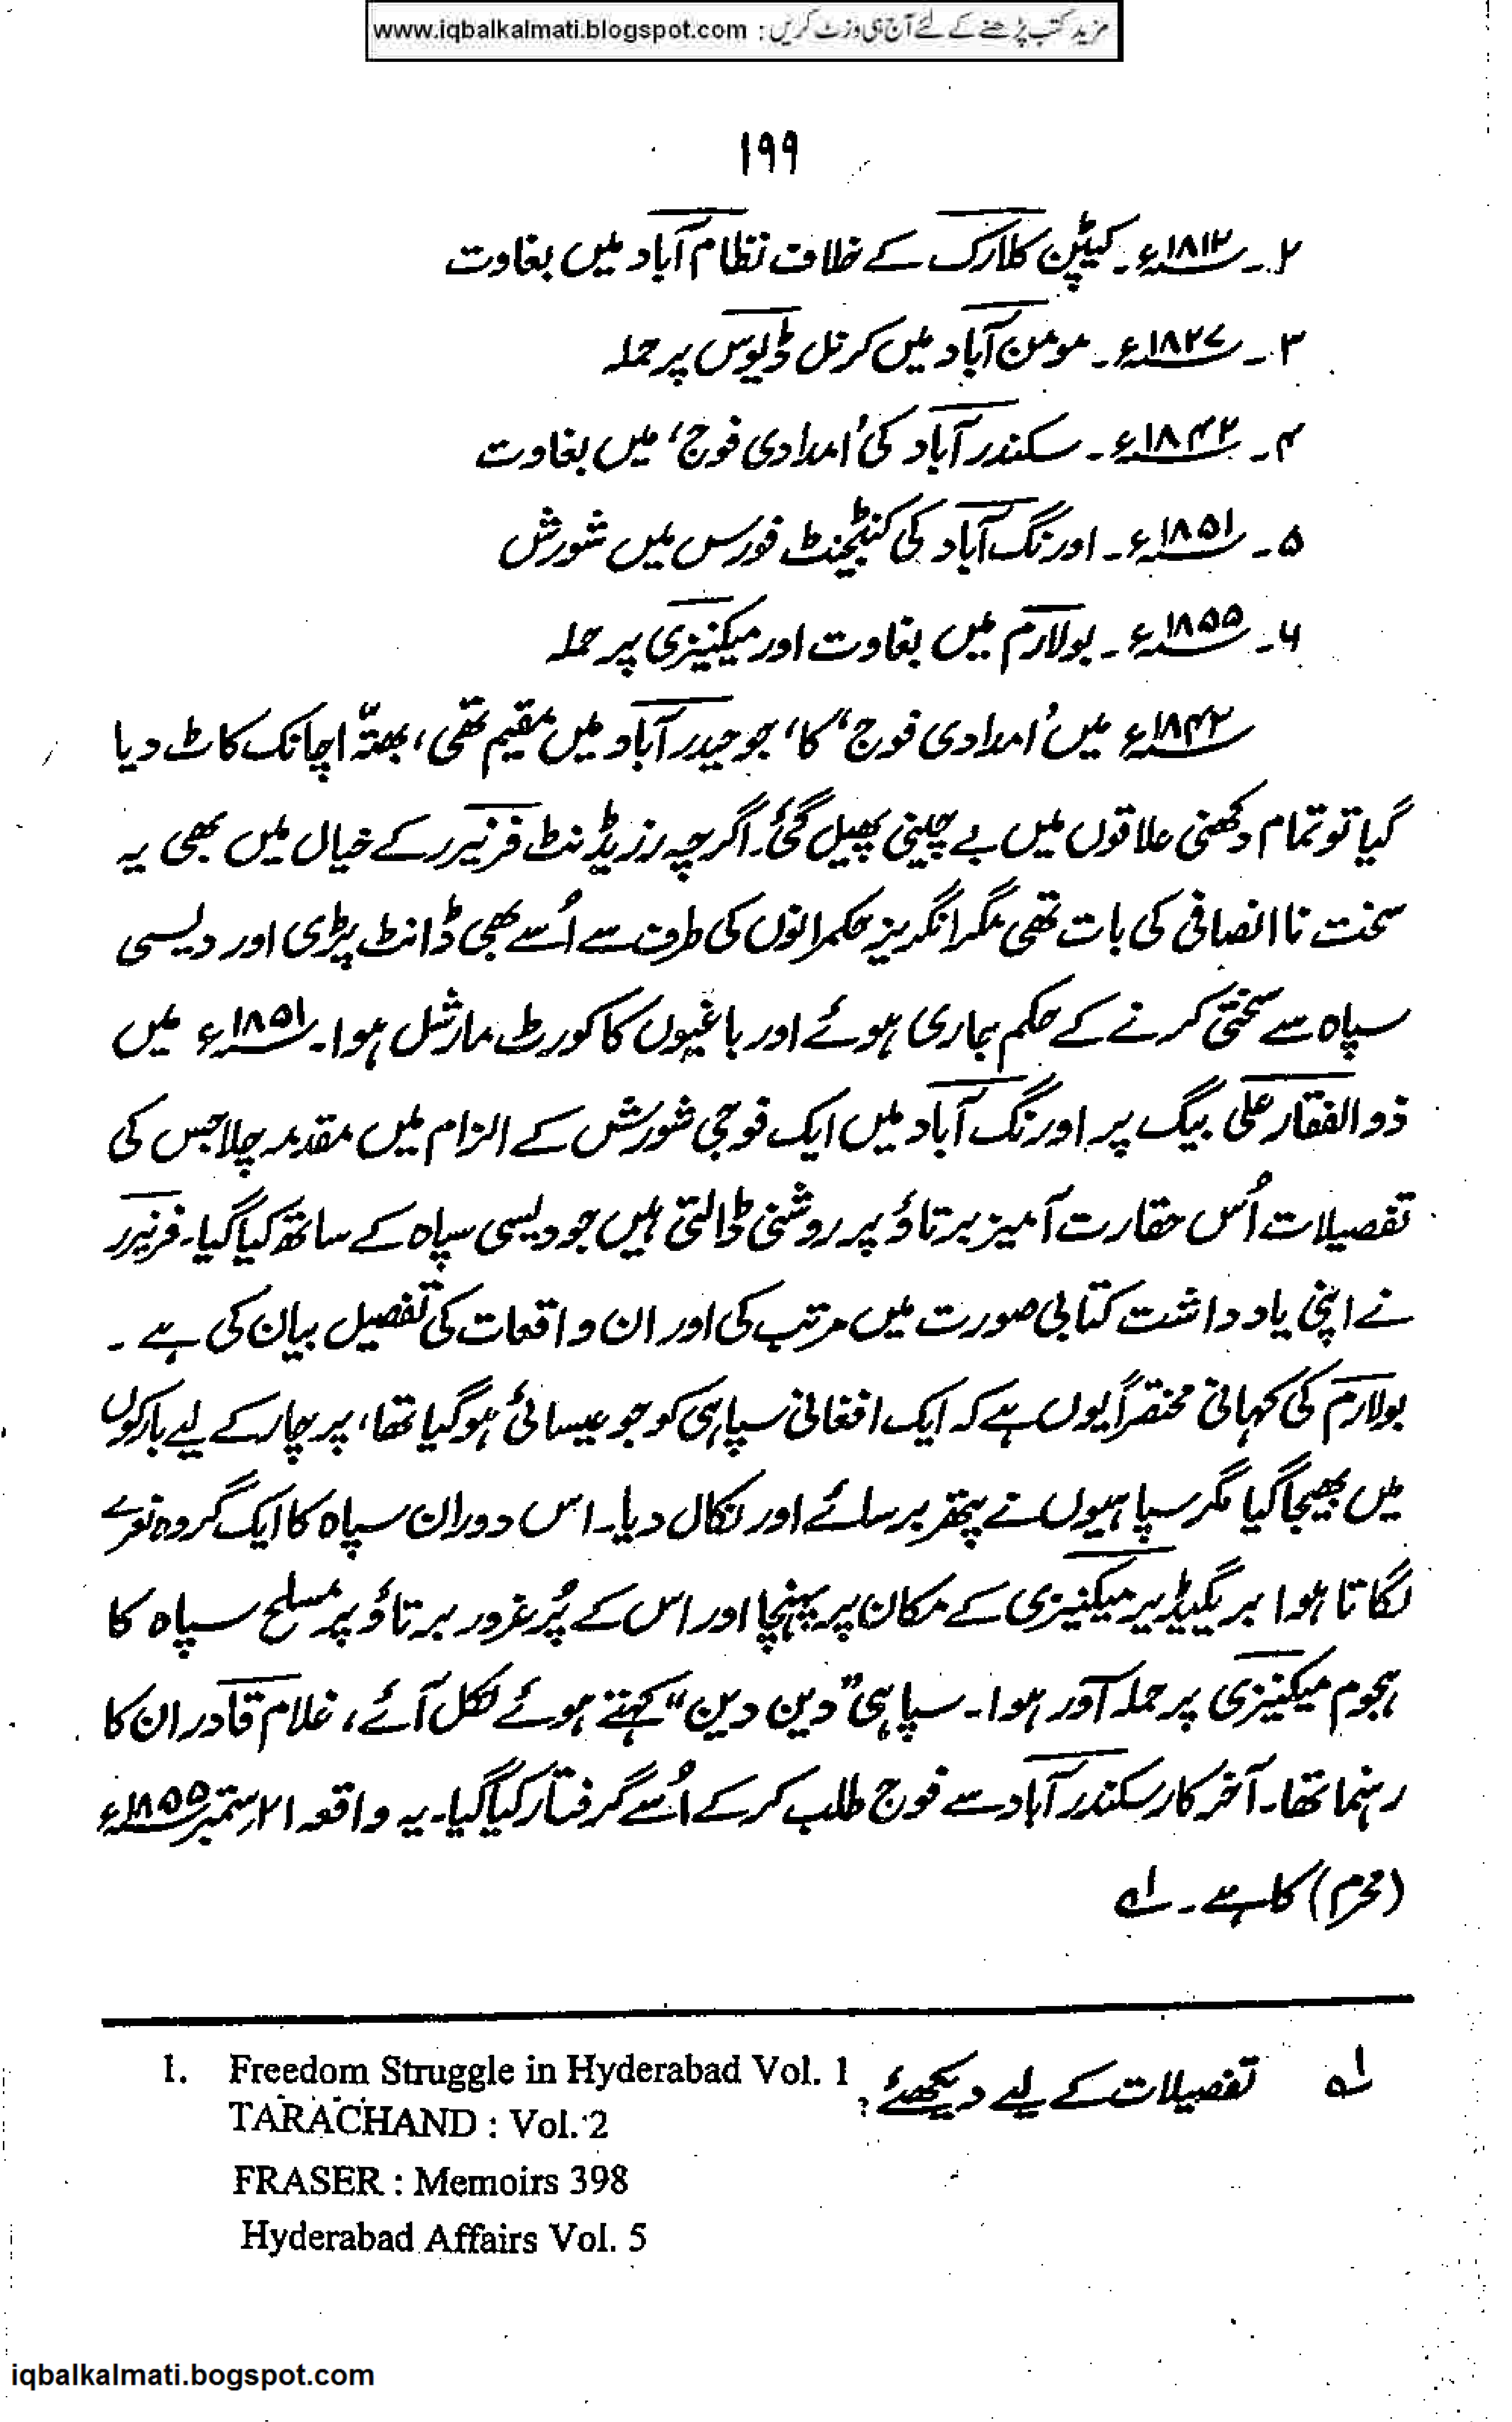 مزید کتب پڑھنے کے لئے آج ہی وزٹ کریں : www.iqbalkalmati.blogspot.com
۱۹۹
۲۔ ۱۸۱۲ء۔ کیپٹن کلارک کے خلاف نظام آباد میں بغاوت
۳۔ ۱۸۲۷ء۔ مومن آباد میں کرنل ڈیوس پر حملہ
۴۔ ۱۸۴۲ء۔ سکندر آباد کی ’امدادی فوج‘ میں بغاوت
۵۔ ۱۸۵۱ء۔ اورنگ آباد کی کنٹیجنٹ فورس میں شورش
۶۔ ۱۸۵۵ء۔ بولارم میں بغاوت اور میکنیزی پر حملہ
۱۸۴۲ء میں ’امدادی فوج‘ کا، جو حیدر آباد میں مقیم تھی، بھتّہ اچانک کاٹ دیا
گیا تو تمام دکھنی علاقوں میں بے چینی پھیل گئی۔ اگرچہ رزیڈنٹ فرنیرر کے خیال میں بھی یہ
سخت ناانصافی کی بات تھی مگر انگریز حکمرانوں کی طرف سے اُسے بھی ڈانٹ پڑی اور دیسی
سپاہ سے سختی کرنے کے حکم جاری ہوئے اور باغیوں کا کورٹ مارشل ہوا۔ ۱۸۵۱ء میں
ذوالفقار علی بیگ پر اورنگ آباد میں ایک فوجی شورش کے الزام میں مقدمہ چلا جس کی
تفصیلات اُس حقارت آمیز برتاؤ پر روشنی ڈالتی ہیں جو دیسی سپاہ کے ساتھ کیا گیا۔ فرنیرر
نے اپنی یادداشت کتابی صورت میں مرتب کی اور ان واقعات کی تفصیل بیان کی ہے ۔
بولارم کی کہانی مختصراً یوں ہے کہ ایک افغانی سپاہی کو جو عیسائی ہو گیا تھا، پرچار کے لیے بارکوں
میں بھیجا گیا مگر سپاہیوں نے پتھر برسائے اور نکال دیا۔ اس دوران سپاہ کا ایک گروہ نعرے
لگاتا ہوا بریگیڈیر میکنیزی کے مکان پر پہنچا اور اس کے پُرغرور برتاؤ پر مسلح سپاہ کا
ہجوم میکنیزی پر حملہ آور ہوا۔ سپاہی ”دین دین“ کہتے ہوئے نکل آئے، غلام قادر ان کا
رہنما تھا۔ آخر کار سکندر آباد سے فوج طلب کر کے اُسے گرفتار کیا گیا۔ یہ واقعہ ۲۱ ستمبر ۱۸۵۵ء
(محرم) کا ہے۔ ۱؎
۱؎ تفصیلات کے لیے دیکھئے؛
1. Freedom Struggle in Hyderabad Vol. 1
TARACHAND : Vol. 2
FRASER : Memoirs 398
Hyderabad Affairs Vol. 5
iqbalkalmati.bogspot.com